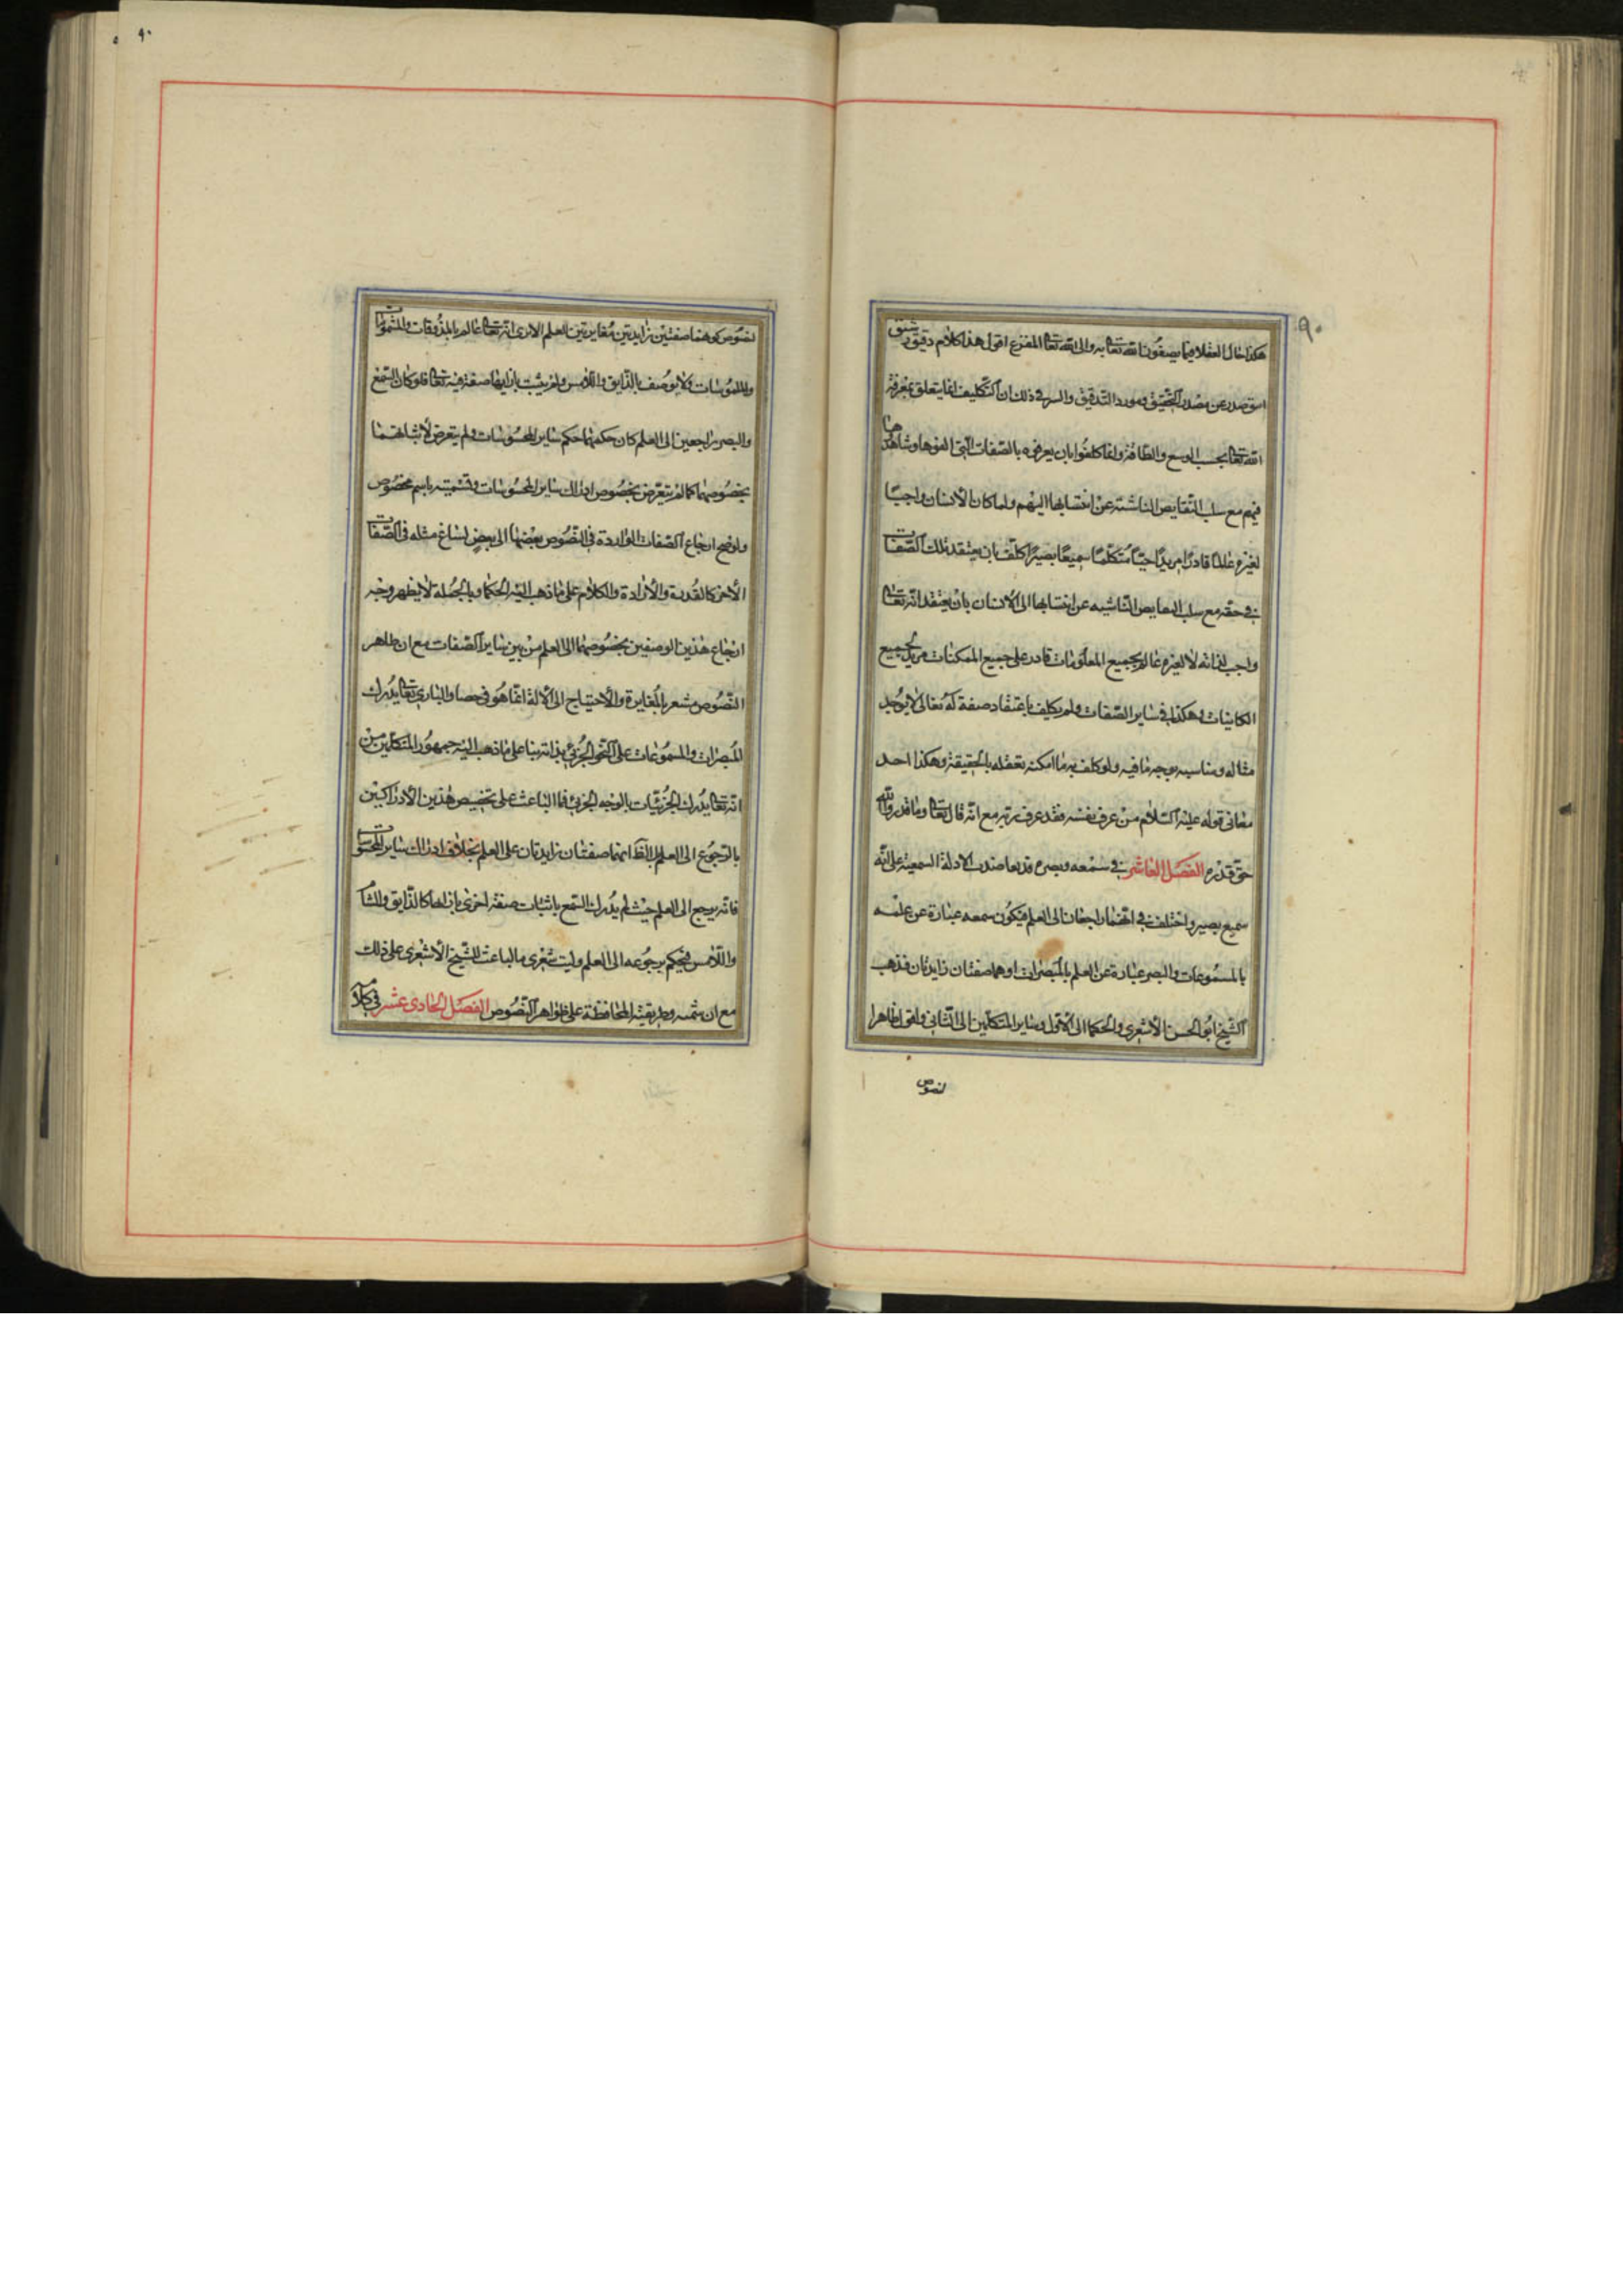 ٩٠
هكذا حال العقلا فيما يصفون الله تعالى به والى الله تعالى المفزع اقول هذا كلام دقيق رشيق
انيق صدر عن مصدر التحقيق ومورد التدقيق والسر في ذلك ان التكليف انما يتعلق بمعرفة
الله تعالى بحسب الوسع والطاقة وانما كلفوا بان يعرفوه بالصفات التي الفوها وشاهدوها
فيهم مع سلب النقايص الناشئة عن انتسابها اليهم ولما كان الانسان واجبا
لغيره عالما قادرا مريدا حيا متكلما سميعا بصيرا كلف بان يعتقد تلك الصفات
في حقه مع سلب النقايص الناشيه عن انتسابها الى الانسان بان يعتقد انه تعالى
واجب لذاته لا لغيره عالم بجميع المعلومات قادر على جميع الممكنات مريد لجميع
الكاينات وهكذا في ساير الصفات ولم يكلف باعتقاد صفة له تعالى لا يوجد
مثاله ومناسبه بوجه ما فيه ولو كلف به ما امكنه تعقله بالحقيقة وهكذا احد
معاني قوله عليه السلام من عرف نفسه فقد عرف ربه مع انه قال تعالى وما قدروا الله
حق قدره الفصل العاشر في سمعه وبصره قد تعاضدت الادلة السمعية على انه
سميع بصير واختلف في انهما راجعان الى العلم فيكون سمعه عبارة عن علمه
بالمسموعات والبصر عبارة عن العلم بالمبصرات او هما صفتان زايدتان فذهب
الشيخ ابو الحسن الاشعري والحكما الى الاول وساير المتكلمين الى الثاني واقول ظاهرا
لنصوص
٩٠
لنصوص كونهما صفتين زايدتين مغايرتين العلم الا ترى انه تعالى عالم بالمذوقات والمشمومات
والملموسات ولا يوصف بالذايق واللامس ولم يثبت بازايها صفة فيه تعالى فلو كان السمع
والبصر راجعين الى العلم كان حكمهما حكم ساير المحسوسات ولم يتعرض لاثباتهما
بخصوصهما كما لم يتعرض بخصوص ادراك ساير المحسوسات وتسميته باسم مخصوص
ولو صح ارجاع الصفات الواردة في النصوص بعضها الى بعض لساغ مثله في الصفات
الاخر كالقدرة والارادة والكلام على ما ذهب اليه الحكما وبالجملة لا يظهر وجه
ارجاع هذين الوصفين بخصوصهما الى العلم من بين ساير الصفات مع ان ظاهر
النصوص مشعر بالمغايرة والاحتياج الى الالة انما هو في حصا والباري تعالى يدرك
المبصرات والمسموعات على النحو الجزئي بذاته بنا على ما ذهب اليه جمهور المتكلمين من
انه تعالى يدرك الجزئيات بالوجه الجزئي فما الباعث على تخصيص هذين الادراكين
بالرجوع الى العلم انهما صفتان زايدتان على العلم بخلاف ادراك ساير المحسوسات
فانه يرجع الى العلم حيث لم يدرك السمع باثبات صفة اخرى بازاها كالذايق والشام
واللامس فيحكم برجوعه الى العلم وليت شعري ما الباعث للشيخ الاشعري على ذلك
مع ان شمته وطريقيته المحافظة على ظواهر النصوص الفصل الحادي عشر في كلامه